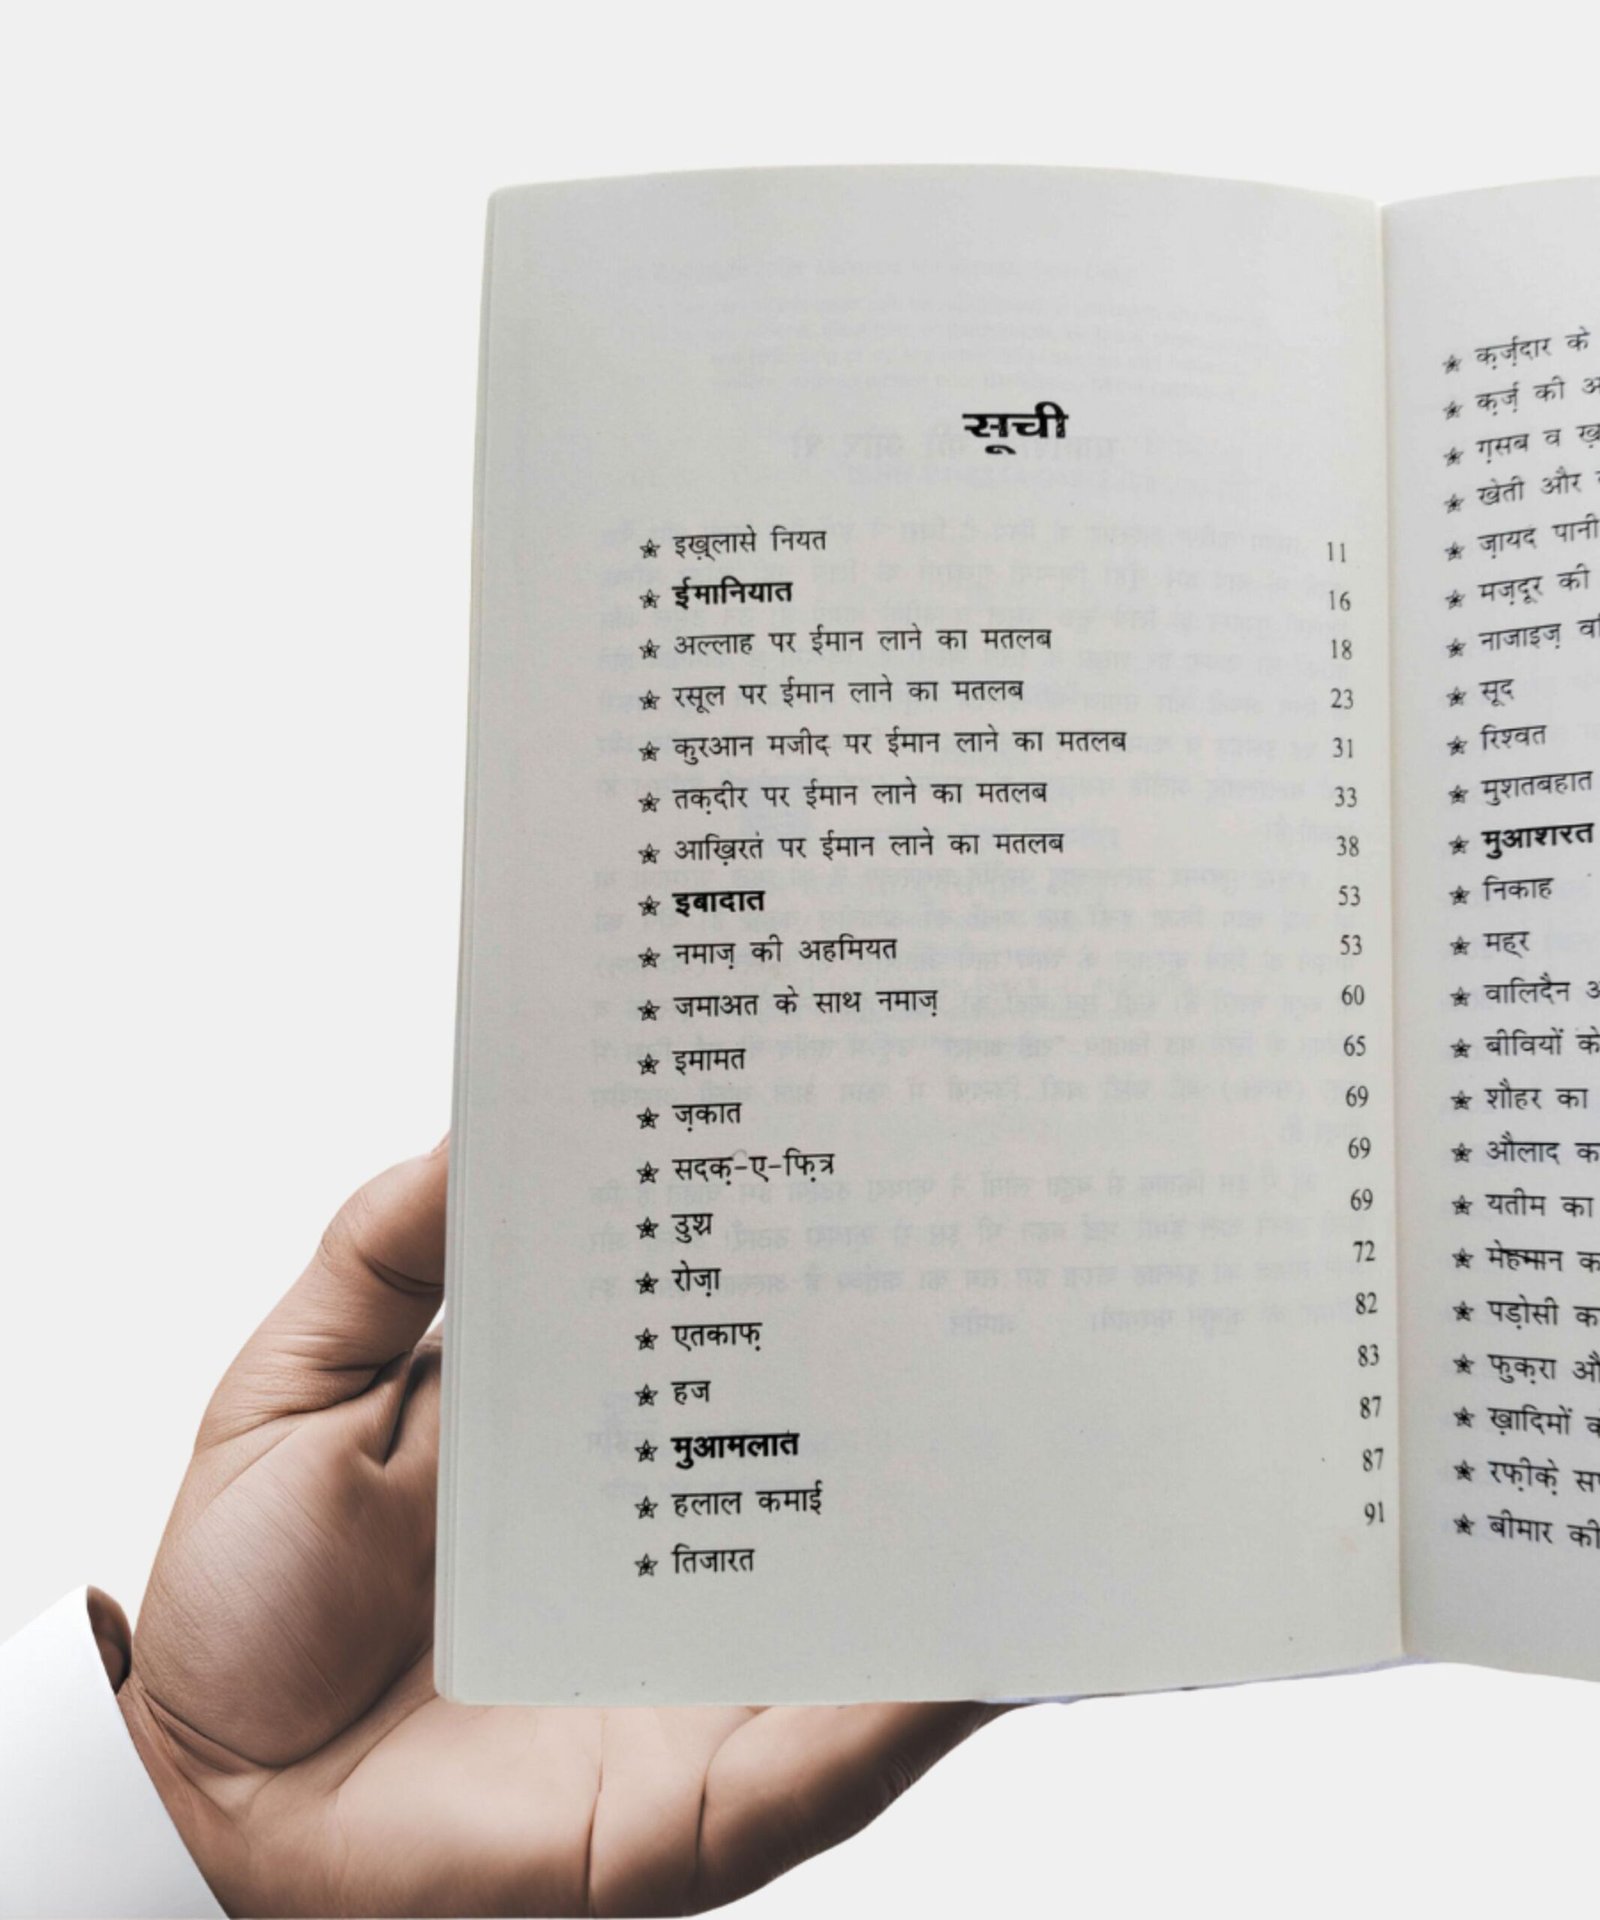 सूची
इख़्लासे नियत 11
ईमानियात 16
अल्लाह पर ईमान लाने का मतलब 18
रसूल पर ईमान लाने का मतलब 23
क़ुरआन मजीद पर ईमान लाने का मतलब 31
तक़दीर पर ईमान लाने का मतलब 33
आख़िरत पर ईमान लाने का मतलब 38
इबादात 53
नमाज़ की अहमियत 53
जमाअत के साथ नमाज़ 60
इमामत 65
ज़कात 69
सदक़-ए-फ़ित्र 69
उश्र 69
रोज़ा 72
एतकाफ़ 82
हज 83
मुआमलात 87
हलाल कमाई 87
तिजारत 91
क़र्ज़दार के
क़र्ज़ की
ग़सब व
खेती और
ज़ायद पानी
मज़दूर की
नाजाइज़
सूद
रिश्वत
मुशतबहात
मुआशरत
निकाह
मह्र
वालिदैन
बीवियों के
शौहर का
औलाद
यतीम का
मेहमान
पड़ोसी
फ़ुक़रा
ख़ादिमों
रफ़ीक़े
बीमार की